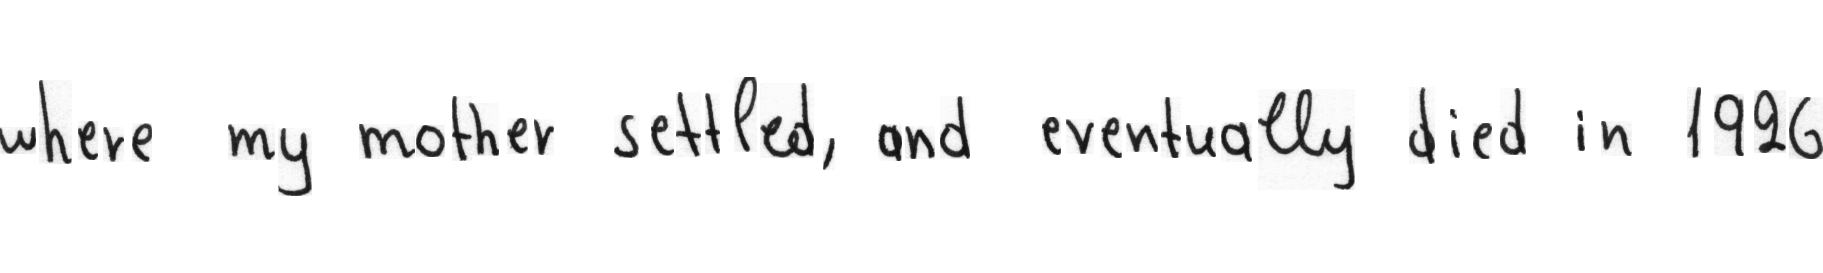 where my mother settled, and eventually died in 1926